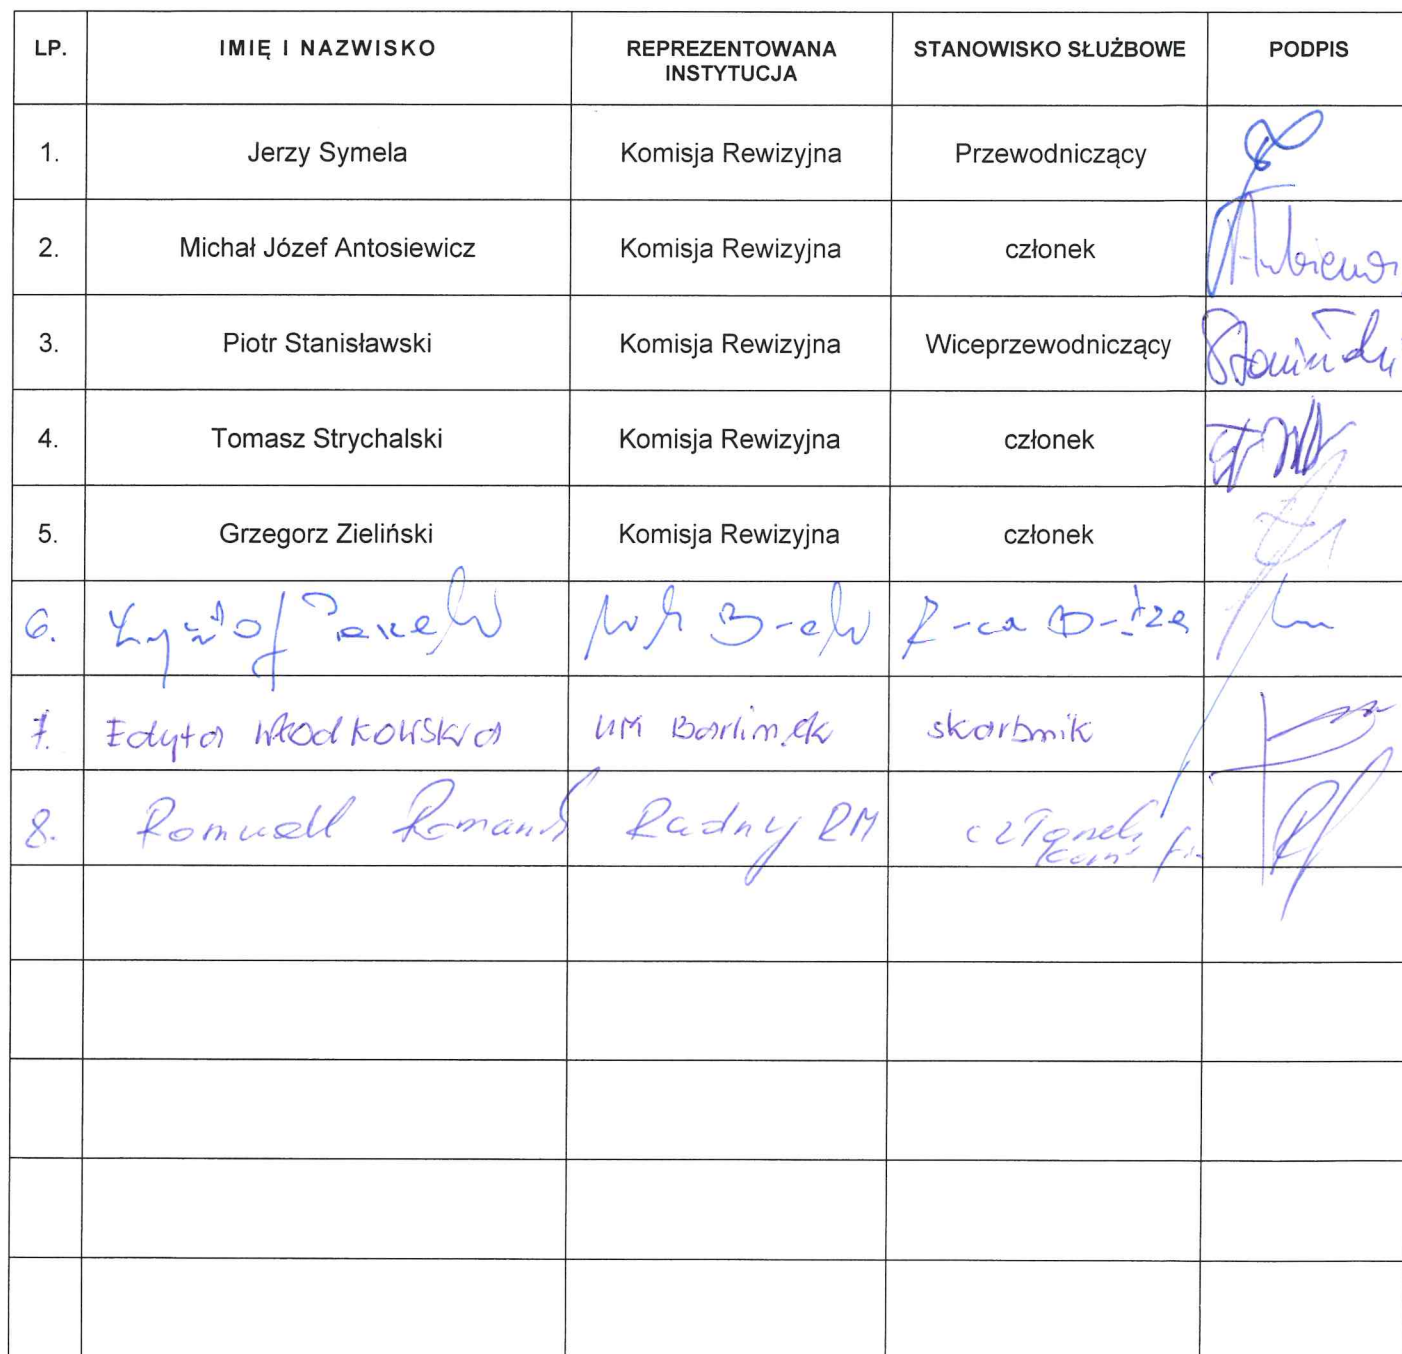 LP. IMIĘ I NAZWISKO REPREZENTOWANA INSTYTUCJA STANOWISKO SŁUŻBOWE PODPIS
1. Jerzy Symela Komisja Rewizyjna Przewodniczący
2. Michał Józef Antosiewicz Komisja Rewizyjna członek
3. Piotr Stanisławski Komisja Rewizyjna Wiceprzewodniczący
4. Tomasz Strychalski Komisja Rewizyjna członek
5. Grzegorz Zieliński Komisja Rewizyjna członek
6. B-ek Z-ca B-trza
7. Edyta Włodkowska UM Barlinek skarbnik
8. Romuald Romaniuk Radny RM członek